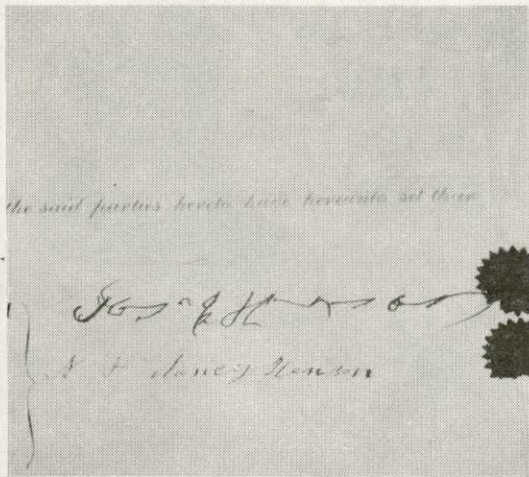 the said parties hereto have hereunto set their
Josiah Henson
Nancy Henson